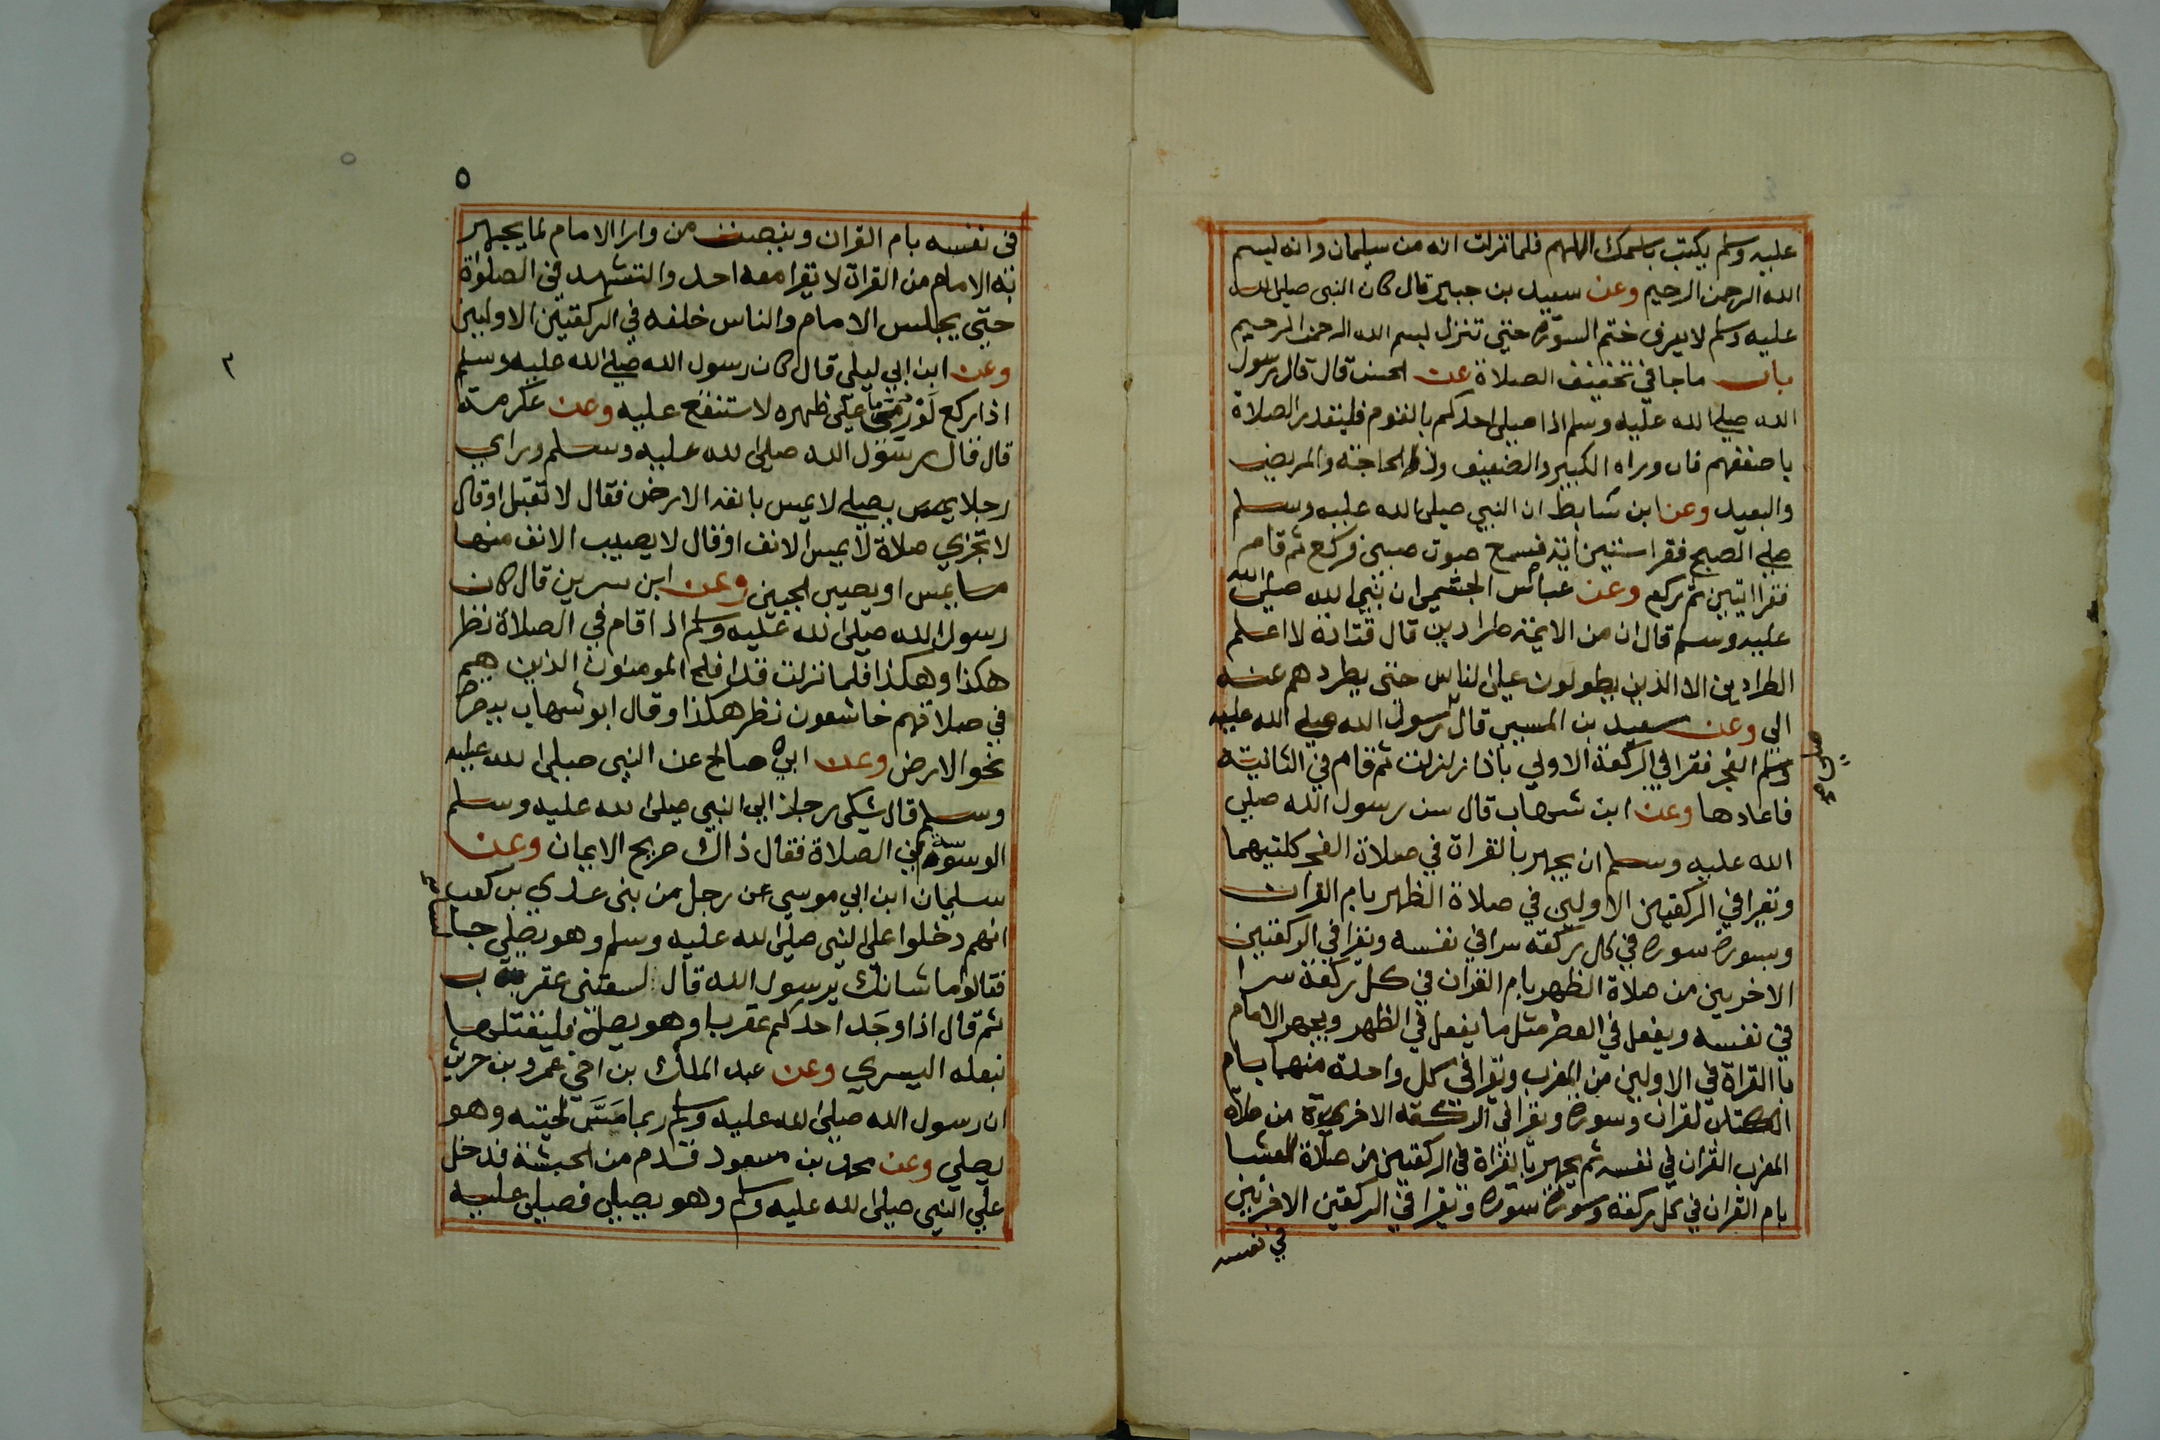 عليه وسلم يكتب باسمك اللهم فلما نزلت انه من سليمان وانه بسم
الله الرحمن الرحيم وعن سعيد بن جبير قال كان النبي صلى الله
عليه وسلم لا يعرف ختم السورة حتى تنزل بسم الله الرحمن الرحيم
باب ما جا في تخفيف الصلاة عن الحسن قال قال رسول
الله صلى الله عليه وسلم اذا صلى احدكم بالقوم فليقدر الصلاة
باضعفهم فان وراه الكبير والضعيف وذا الحاجة والمريض
والبعيد وعن ابن شابط ان النبي صلى الله عليه وسلم
صلى الصبح فقرا ستين اية فسمع صوت صبي فركع ثم قام
فقرا ايتين ثم ركع وعن عباس الجشمي ان نبي الله صلى الله
عليه وسلم قال ان من الايمة طرادين قال قتادة لا اعلم
الطرادين الا الذين يطولون على الناس حتى يطردهم عنه
الى وعن سعيد بن المسيب قال رسول الله صلى الله عليه
وسلم الفجر فقرا في الركعة الاولى باذا زلزلت ثم قام في الثانية
فاعادها وعن ابن شهاب قال سن رسول الله صلى
الله عليه وسلم ان يجهر بالقراة في صلاة الفجر كلتيهما
وتقرا في الركعتين الاولين في صلاة الظهر بام القران
وسورة سورة في كل ركعة سرا في نفسه وتقرا في الركعتين
الاخريين من صلاة الظهر بام القران في كل ركعة سرا
في نفسه ويفعل في العصر مثل ما يفعل في الظهر ويجهر الامام
باالقراة في الاولين من المغرب وتقرا في كل واحدة منهما بام
القران وسورة وتقرا في الركعة الاخرية من صلاة
المغرب القران في نفسه ثم يجهر بالقراة في الركعتين من صلاة العشا
بام القران في كل ركعة وسورة سورة وتقرا في الركعتين الاخريين
في نفسه
٥
في نفسه بام القران وينصت من وارا الامام لما يجهر
به الامام من القراة لا يقرا معه احد والتشهد في الصلواة
حتى يجلس الامام والناس خلفه في الركعتين الاوليين
٣
وعن ابن ابي ليلى قال كان رسول الله صلى الله عليه وسلم
اذا ركع لو رمى ما على ظهره لاستنقع عليه وعن عكرمة
قال قال رسول الله صلى الله عليه وسلم وراي
رجلا يصلي لا يمس بانفه الارض فقال لا تقبل او قال
لا تجزي صلاة لا يمس الانف او قال لا يصيب الانف منها
ما يمس او يصيب الجبين وعن ابن سرين قال كان
رسول الله صلى الله عليه وسلم اذا قام في الصلاة نظر
هكذا وهكذا فلما نزلت قد افلح المومنون الذين هم
في صلاتهم خاشعون نظر هكذا وقال ابو شهاب ببصره
نحو الارض وعن ابي صالح عن النبي صلى الله عليه
وسلم قال شكى رجل الى النبي صلى الله عليه وسلم
الوسوسة في الصلاة فقال ذاك صريح الايمان وعن
سليمان ابن ابي موسى عن رجل من بنى عدي بن كعب
انهم دخلوا على النبي صلى الله عليه وسلم وهو يصلي جالسا
فقالوا ما شانك يرسول الله قال لسعتني عقرب
ثم قال اذا وجد احدكم عقربا وهو يصلي فليقتلها
بنعله اليسري وعن عبد الملك بن اخي عمرو بن حريث
ان رسول الله صلى الله عليه وسلم ربما مَسَّ لحيته وهو
يصلي وعن محمد بن مسعود قدم من الحبشة فدخل
على النبي صلى الله عليه وسلم وهو يصلي فصلى عليه